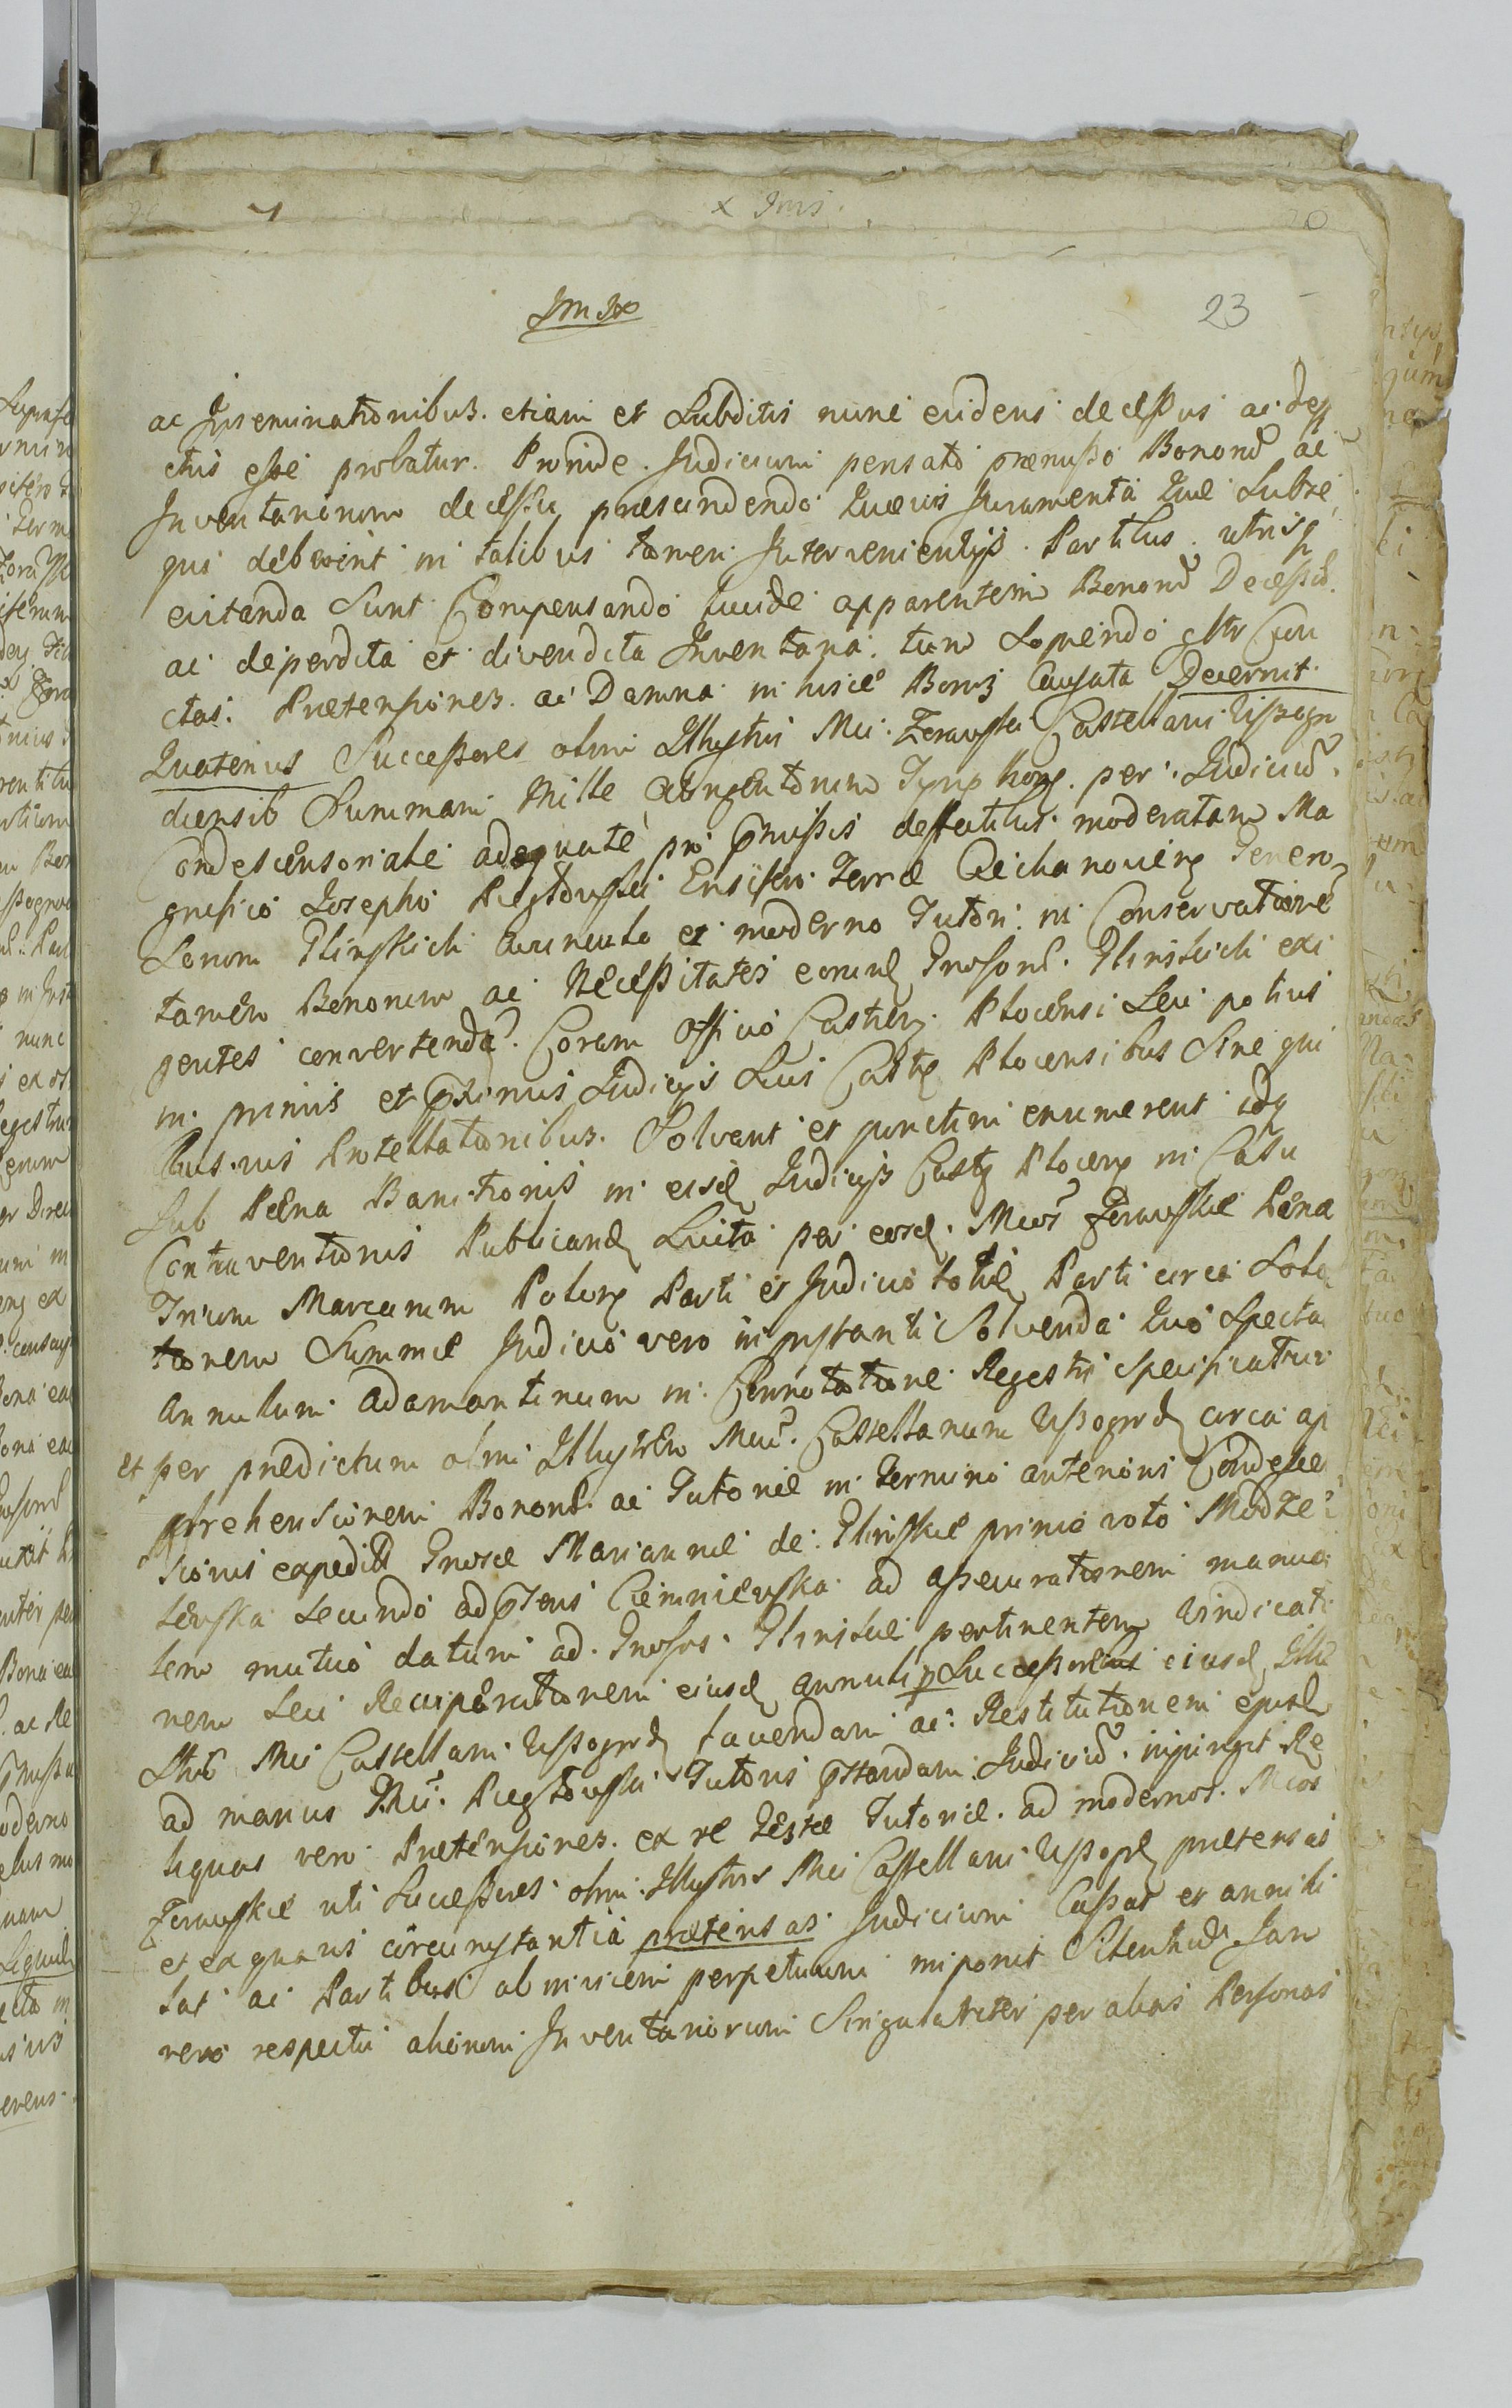 x Imis
20
23
ac Inseminationibus. etiam et Subditis nunc evidens decessus ac defe
ctus esse probatur. Proinde. Judicium pensato præmisso Bonorũ ac
Inventariorum decessu prescindendo quævis Juramenta quæ Subse
qui debuerint in talibus tamen Intervenientijs. Partibus. utrisq
evitanda Sunt Compensando lucide apparentem Bonorũ Decessũ.
ac deperdita et divendita Inventaria. tum Sopiendo Cun
ctas. Prætensiones. ac Damna in hisce Bonis Causata Decernit
Quatenus Successores olim Illustris Mci. Zerawski Castellani Wyszogro
diensis Summam Mille Quingentorum per. Judiciũ.
Condescensoriale adæquate pro præmissis deffectibus moderatam Ma
gnifico Josepho Ensifero Terræ Ciechanoviens Genero
sorum Glinskich avunculo et moderno Tutori. in Conservatione
tamen Bonorum ac Necessitates eorund Gnosorũ. Glinskich exi
gentes convertendã. Coram Officio Castren. Plocensi Seu potius
in primis et proximis Judicijs Suis Castr Plocensibus Sine qui
busvis Protestationibus. Solvent et punctim enumerent idq
Sub Pæna Banitionis in eisd Judicijs Castr Plocens in Casu
Contraventionis Publicand Luita per eosd. Mcos Zerawskie Pæna
Trium Marcarum Polon Parti et Judicio totid Parti circa Solu
tionem Summæ Judicio vero in instanti Solvenda. Quo Specta
annulum adamantinum in Connotatione Regestri Specificatum
et per prædictum olim Illustrem Mcũ. Castellanum Wyszogrod circa ap
prehensionem Bonorũ. ac Tutoriæ in Termino anterioris Condescen
sionis expeditæ Gnosæ Mariannæ de Glinskie primo voto Modze
lewska secundo ad præsens Ciemniewska ad assecurationem manua
lem mutuo datum ad. Gnosos. Glinskie pertinentem Vindicatio
nem Seu Recuperationem eiusd annuli p Successores eiusd Illu
stris Mci Castellani Wyszogrod faciendam ac Restitutionem ejusd
ad manus Mci. Tutoris præstandam Judiciũ. injungit Re
liquas vero Prætensiones. ex re Gestæ Tutoriæ. ad modernos. Mcos
Zerawskie uti Successores olim. Illustris Mci Castellani Wyszogr prætensas
et ex quavis circumstantia prætensas Judicium Cassat et annihi
lat ac Partibus ab invicem perpetuum imponit Silentium. Jam
vero respectu aliorum Inventariorum Singulariter per alias Personas